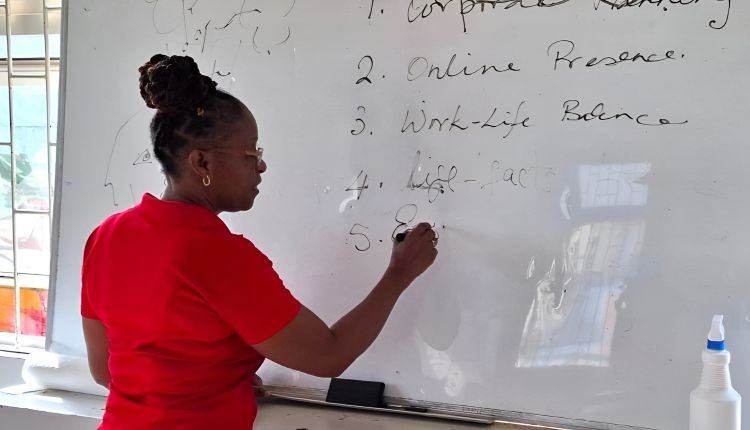 1. Corporate
2. Online Presence.
3. Work-Life Balance
4. Life-facts
5.